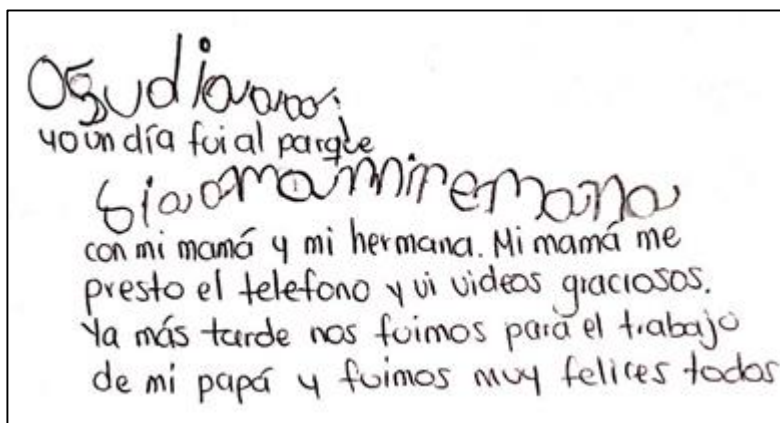 yo un día fui al parque
con mi mamá y mi hermana. Mi mamá me
presto el telefono y vi videos graciosos.
Ya más tarde nos fuimos para el trabajo
de mi papá y fuimos muy felices todos